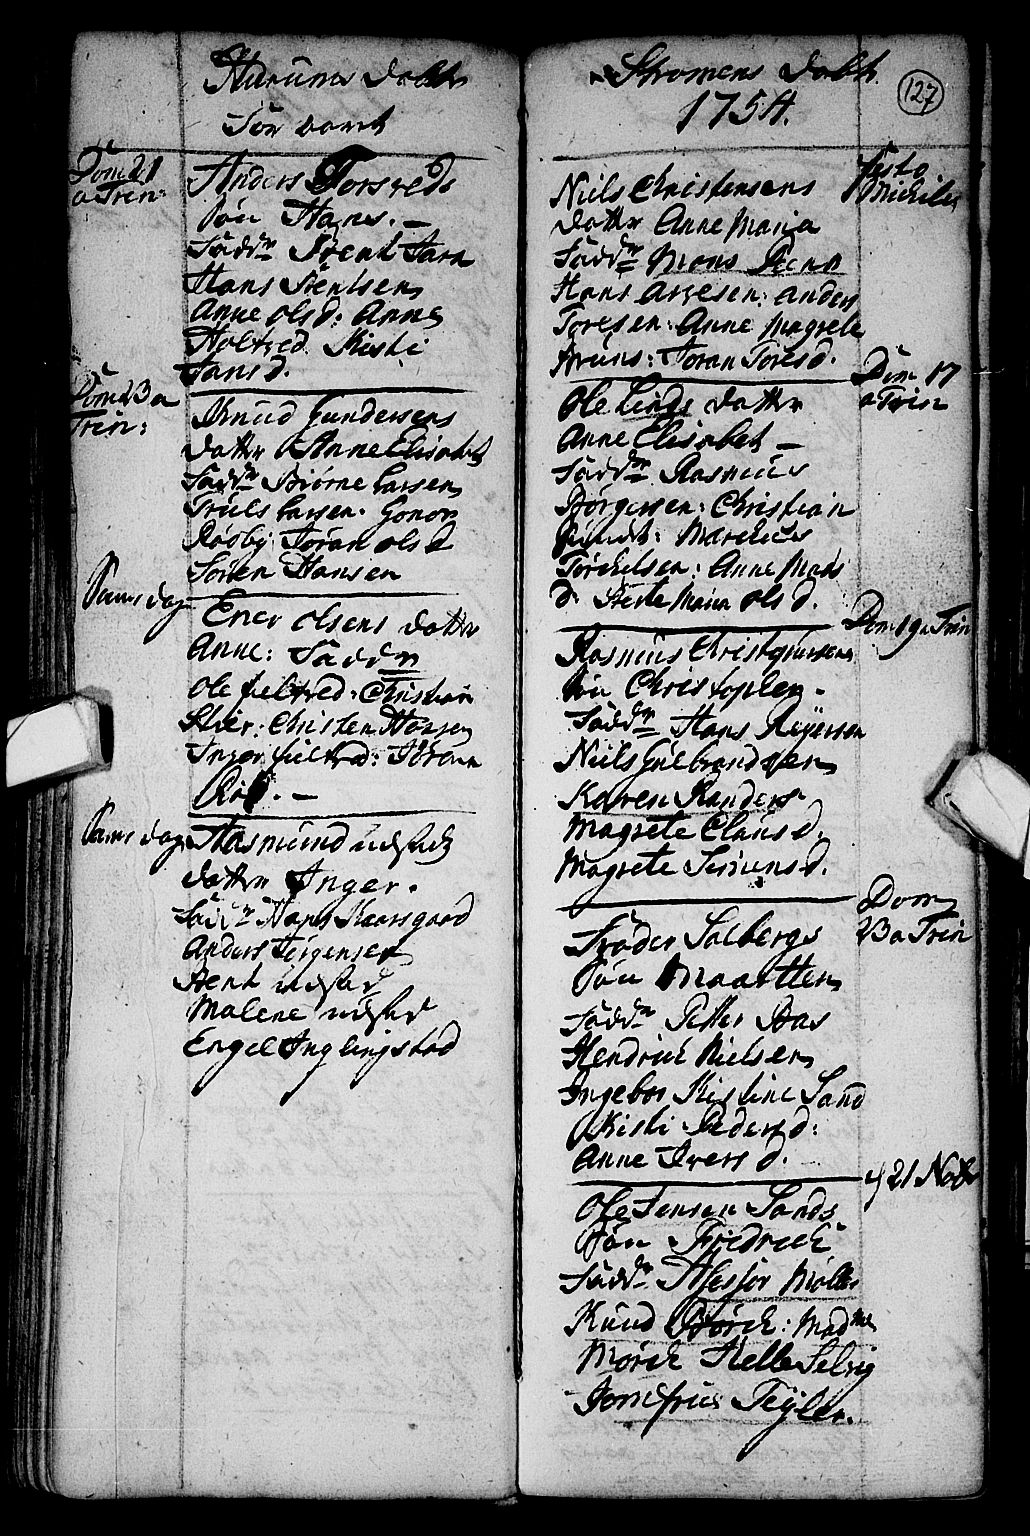 Hurums Døbte
Dom 21
a Trin:
Anders Torsveds
Søn Hans. —
Fadd:n
Hans Svensen
Anne Olsd: Anne
Holtved. Kisti
Jansd.
Dom 23 a
Trin:
Knud Gundersens
datter Anne Elisabet
Fadd:n Biørne Larsen
Truls Larsen. Gonor
Røsby Joran Olsd
Søren Hansen
Sams dag
Ener Olsens datter
Anne: Fadd:n
Ole Fieltved: Christian
Skier: Christen Hansen
Inger Fieltved: Joran
Rød. —
Sams dag
Aasmund
datter Inger.
Fadd:n Hans Kaarsgaard
Anders Jørgensen
Malene
Engel Inglingstad
Strømens Døbte
1754.
127
Festo
Michaelis
Niels Christensens
datter Anne Maria
Fadd:n Mons
Hans Aslesen: Anders
Toresen: Anne Magrete
Bruns: Joran Toresd.
Dom 17
a Trin
Ole Linds datter
Anne Elisabet —
Fadd:n Rasmus
Børgersen: Christian
Marchus
Torchelsen: Anne Mads
d. Maria Olsd.
Dom 19 a Trin
Rasmus Christophersens
Søn Christopher.
Fadd:n Hans Reyersen
Niels Gulbrandsen
Karen Randers
Magrete Clausd.
Magrete Simensd.
Dom
23 a Trin
Trøder Solbergs
Søn Maartten
Fadd:n Petter Boas
Hendrich Nielsen
Ingebor Kistine Sand
Kisti Pedersd:
Anne Iversd.
d 21 Nov
Ole Jensen Sands
Søn Fredrich
Fadd:n Assessor Møller
Knud Børch: Mad:me
Mørch Helle Selvig
Jomfrue Tyler.